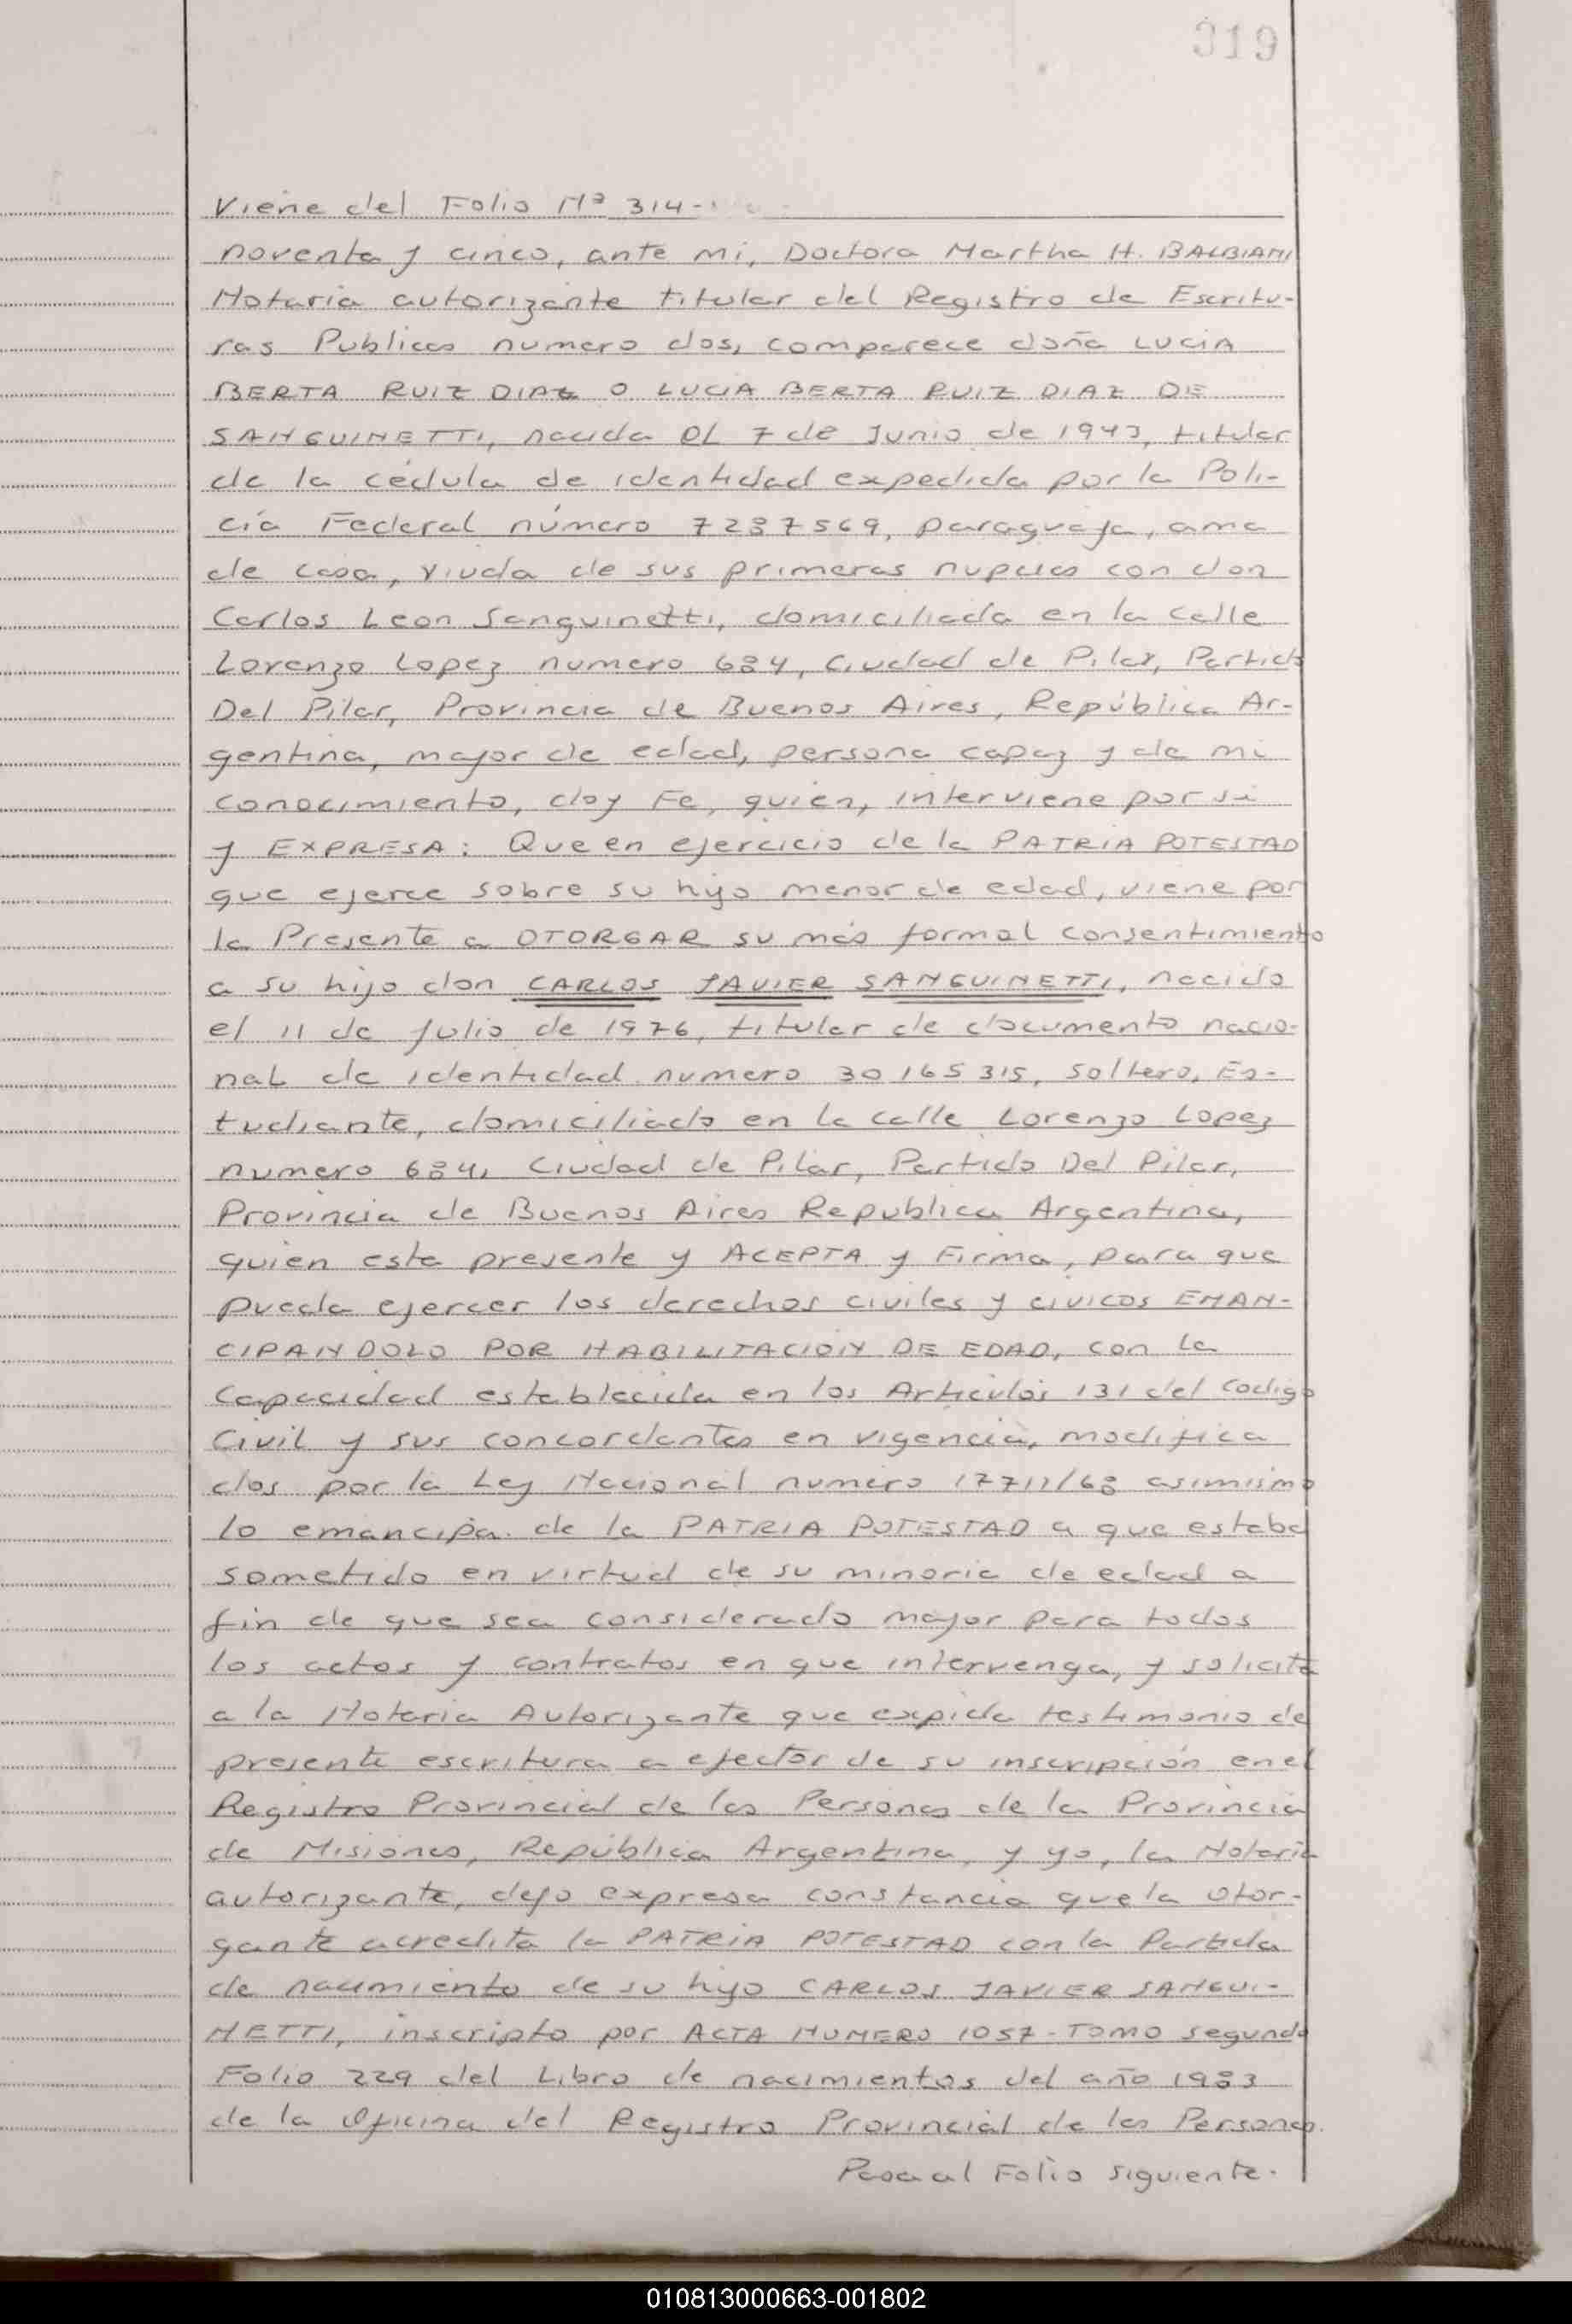 319
Viene del Folio Nº 314-
noventa y cinco, ante mi, Doctora Martha H. BALBIANI
Notaria autorizante titular del Registro de Escritu-
ras Publicas numero dos, comparece doña LUCIA
BERTA RUIZ DIAZ O LUCIA BERTA RUIZ DIAZ DE
SANGUINETTI, nacida EL 7 de Junio de 1943, titular
de la cédula de identidad expedida por la Poli-
cía Federal número 7237569, paraguaya, ama
de casa, viuda de sus primeras nupcias con don
Carlos Leon Sanguinetti, domiciliada en la calle
Lorenzo Lopez numero 684, Ciudad de Pilar, Partido
Del Pilar, Provincia de Buenos Aires, República Ar-
gentina, mayor de edad, persona capaz y de mi
conocimiento, doy Fe, quien, interviene por si
y EXPRESA: Que en ejercicio de la PATRIA POTESTAD
que ejerce sobre su hijo menor de edad, viene por
la Presente a OTORGAR su más formal consentimiento
a su hijo don CARLOS JAVIER SANGUINETTI, nacido
el 11 de Julio de 1976, titular de documento nacio-
nal de identidad numero 30165315, soltero, Es-
tudiante, domiciliado en la calle Lorenzo Lopez
numero 684, Ciudad de Pilar, Partido Del Pilar,
Provincia de Buenos Aires Republica Argentina,
quien esta presente y ACEPTA y Firma, para que
pueda ejercer los derechos civiles y civicos EMAN-
CIPANDOLO POR HABILITACION DE EDAD, con la
Capacidad establecida en los Articulos 131 del Codigo
Civil y sus concordantes en vigencia, modifica
dos por la Ley Nacional numero 17711/68 asimismo
lo emancipa de la PATRIA POTESTAD a que estaba
sometido en virtud de su minoria de edad a
fin de que sea considerado mayor para todos
los actos y contratos en que intervenga, y solicita
a la Notaria Autorizante que expida testimonio de
presente escritura a efectos de su inscripción en el
Registro Provincial de las Personas de la Provincia
de Misiones, República Argentina, y yo, la Notaria
autorizante, dejo expresa constancia que la otor-
gante acredita la PATRIA POTESTAD con la Partida
de nacimiento de su hijo CARLOS JAVIER SANGUI-
NETTI, inscripto por ACTA NUMERO 1057-TOMO segundo
Folio 229 del Libro de nacimientos del año 1983
de la Oficina del Registro Provincial de las Personas.
Pasa al Folio siguiente.
010813000663-001802